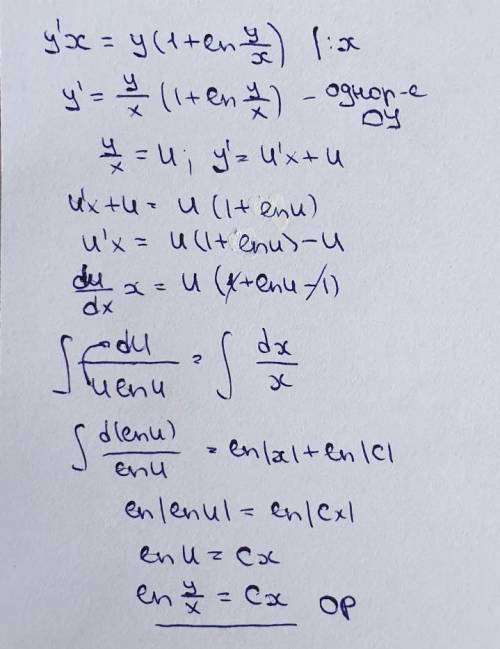 y'x = y(1+ln y/x) |:x
y' = y/x (1+ln y/x) - однор-е ДУ
y/x = u; y' = u'x+u
u'x+u = u (1+ln u)
u'x = u(1+ln u)-u
du/dx x = u (1+ln u-1)
∫ du/(u ln u) = ∫ dx/x
∫ d(ln u)/ln u = ln|x|+ln|C|
ln|ln u| = ln|Cx|
ln u = Cx
ln y/x = Cx ОР